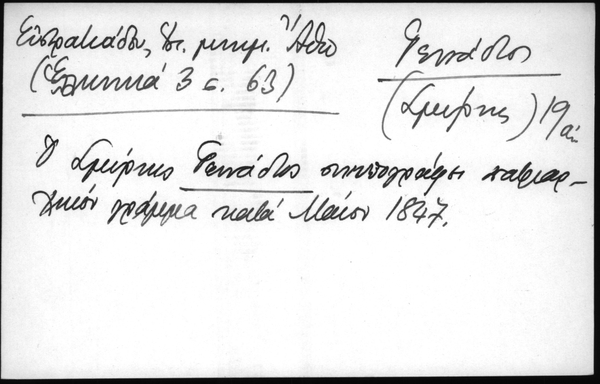 Εὐστρατιάδου, Ἱστ. μνημ. Ἄθω
(Ἑλληνικά 3 σ. 63)
Γεννάδιος
(Σμύρνης) 19 αἰ.
Ὁ Σμύρνης Γεννάδιος συνυπογράφει πατριαρ-
χικόν γράμμα κατά Μάϊον 1847.